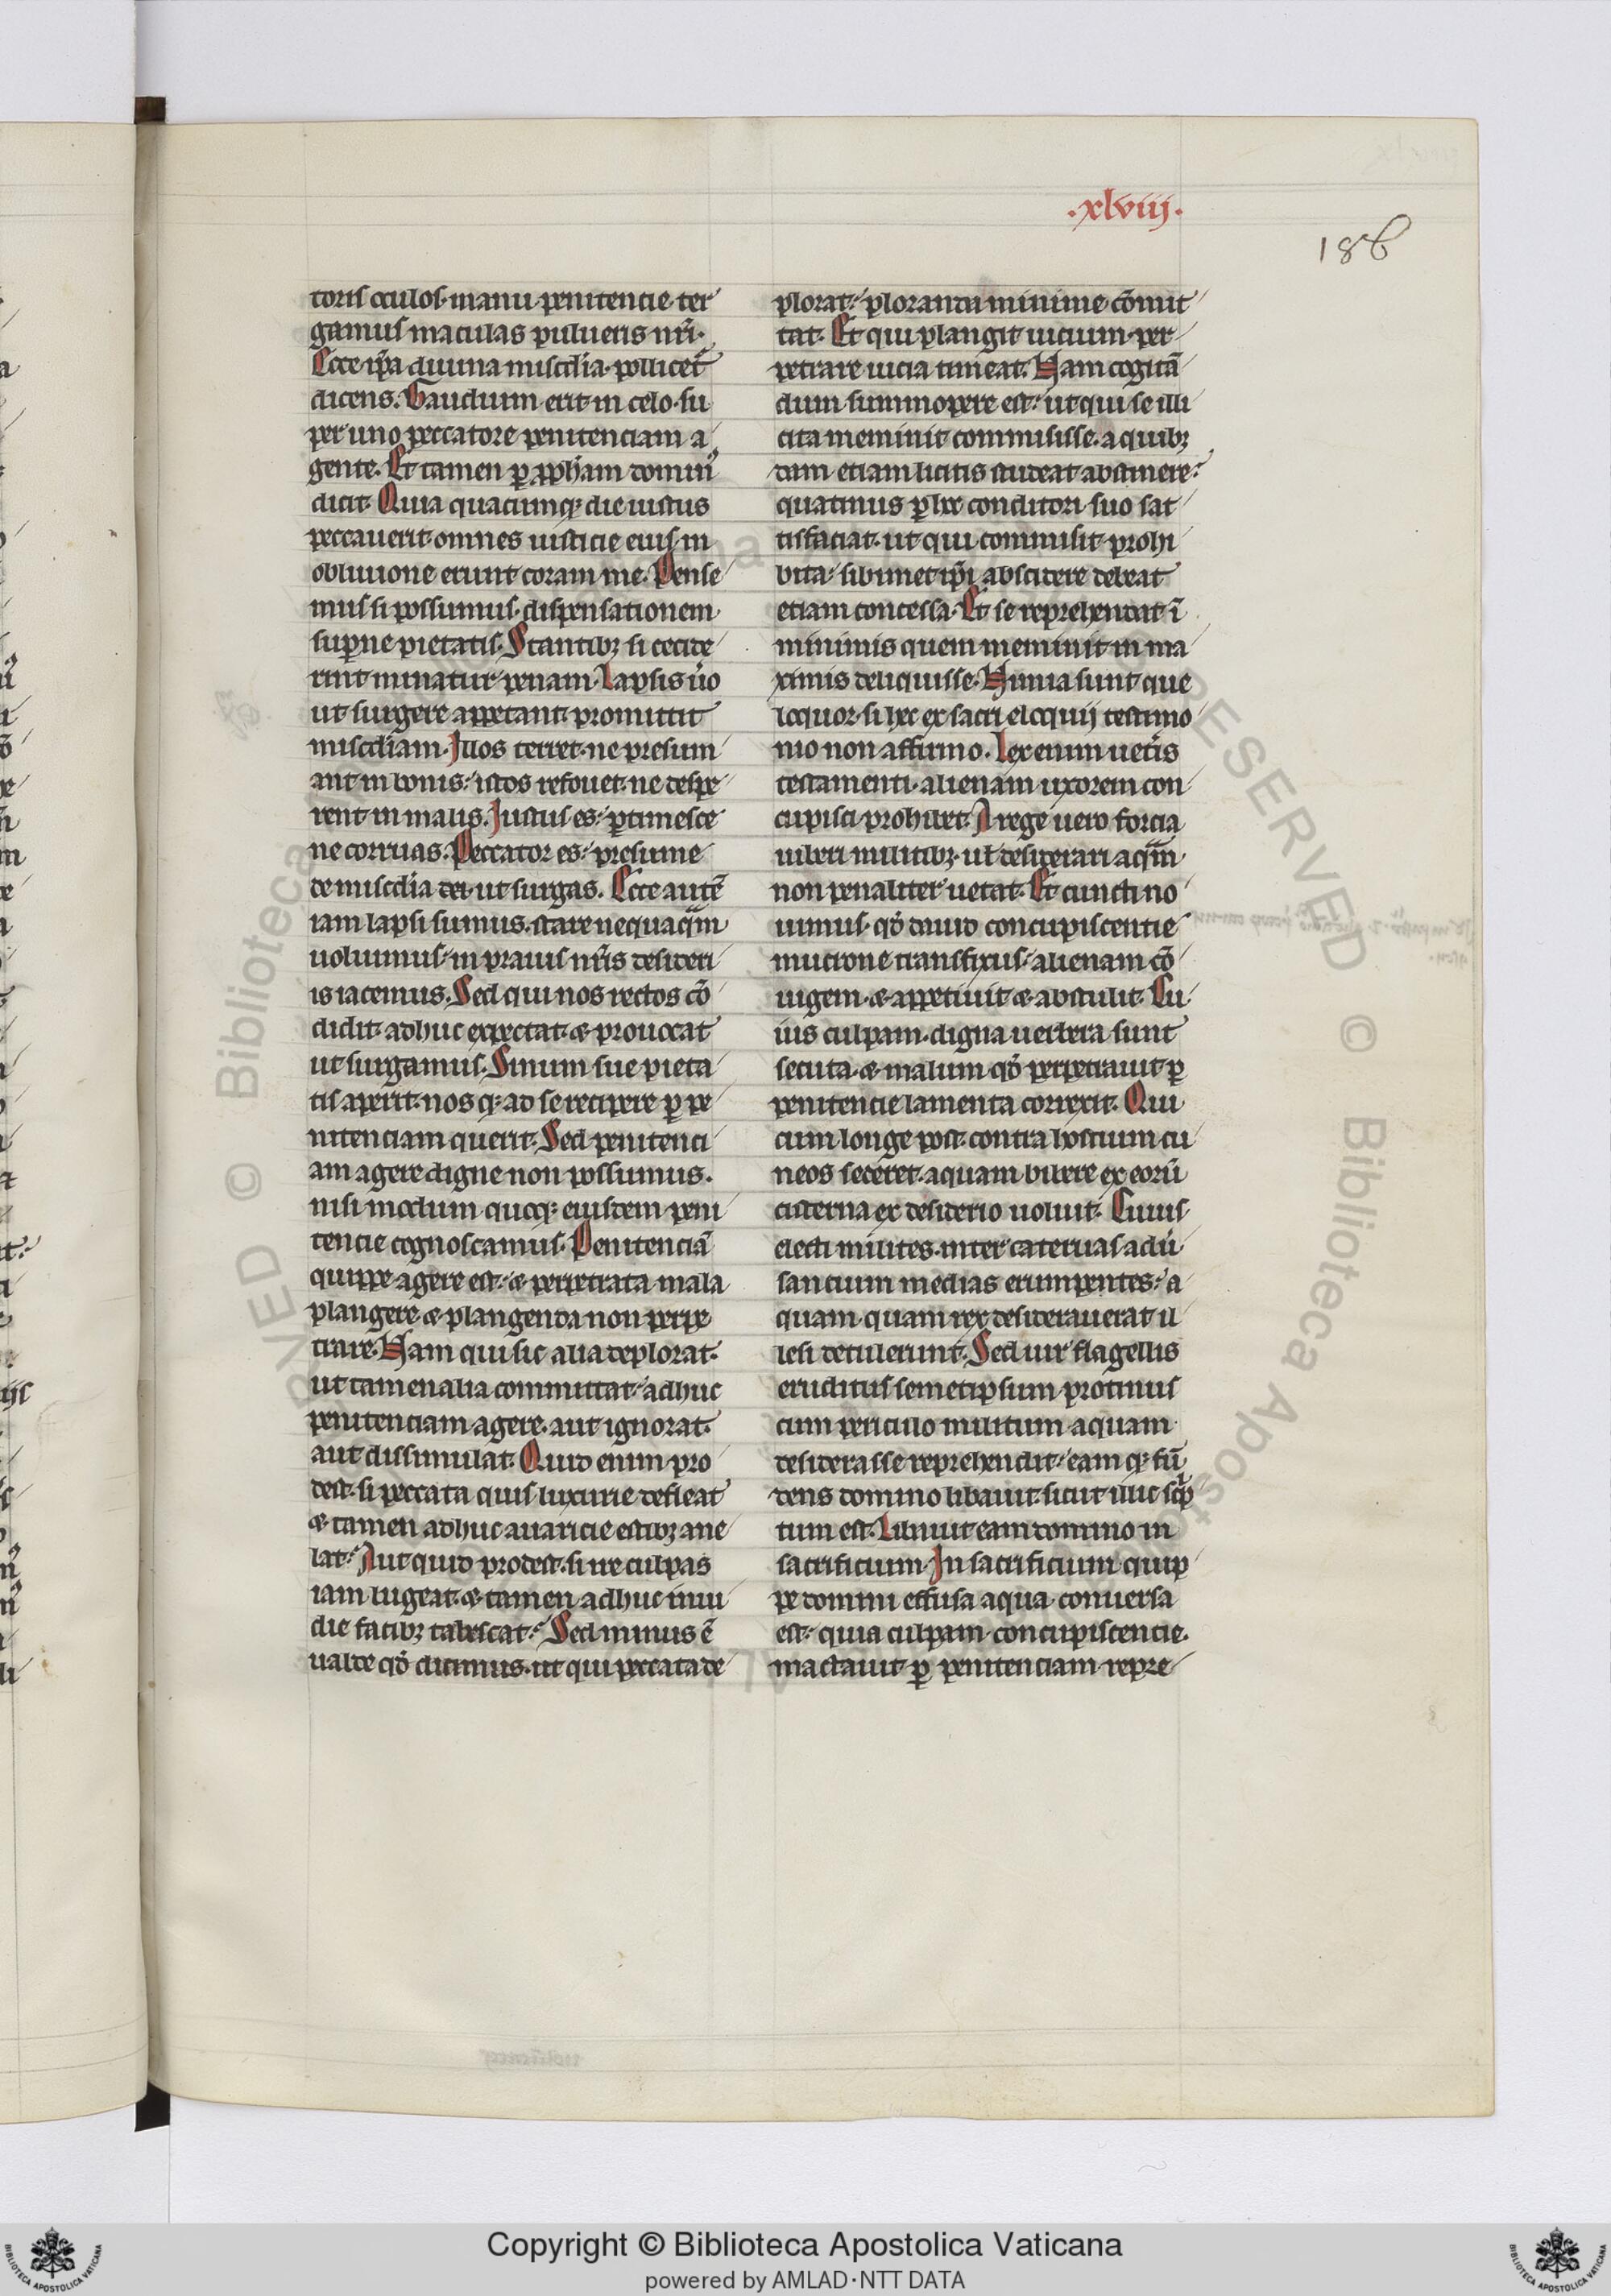 .xlviij.
186
toris oculos· manu penitencie ter
gamus maculas pulueris nr̄i·
Ecce ip̄a diuina misc̄dia pollicet᷑
dicens. Gaudium erit in celo· su
per uno peccatore penitenciam a
gente. Et tamen ꝑ ꝓph̄am domin᷒
dicit. Quia quacumqꝫ die iustus
peccauerit· omnes iusticie eius in
obliuione erunt coram me. Pense
mus si possumus· dispensationem
sup̄ne pietatis. Stantibꝫ si cecide
rint minatur penam. Lapsis u̾o
ut surgere appetant· promittit
misc̄diam. Illos terret· ne presum
ant in bonis· istos refouet· ne despe
rent in malis. Iustus es· ꝑtimesce
ne corruas. Peccator es· presume
de misc̄dia dei· ut surgas. Ecce autē
iam lapsi sumus. stare nequaqͣm
uoluimus· in prauis nr̄is desideri
is iacemus. Sed qui nos rectos cō
didit· adhuc expectat· & prouocat
ut surgamus. Sinum sue pieta
tis aperit· nos qꝫ ad se recipere ꝑ pe
nitenciam querit. Sed penitenci
am agere digne non possumus.
nisi modum quoqꝫ eiusdem peni
tencie cognoscamus. Penitenciā
quippe agere est· & perpetrata mala
plangere & plangenda non perpe
trare. Nam qui sic alia deplorat·
ut tamen alia committat· adhuc
penitenciam agere· aut ignorat·
aut dissimulat. Quid enim pro
dest· si peccata quis luxurie defleat
& tamen adhuc auaricie estibꝫ ane
lat. Aut quid prodest· si ire culpas
iam lugeat· & tamen adhuc inui
die facibꝫ tabescat. Sed minus ē
ualde qd̄ dicimus· ut qui peccata de
plorat· ploranda minime cōmit
tat. Et qui plangit uicium· per
petrare uicia timeat. Nam cogitā
dum summopere est· ut qui se illi
cita meminit commisisse· a quibꝫ
dam etiam licitis studeat abstinere·
quatinus ꝑ hec conditori suo sat
tisfaciat· ut qui commisit prohi
bita· sibimet ip̄i abscidere debeat
etiam concessa. Et se reprehendat ī
minimis quem meminit in ma
ximis deliquisse. Nimia sunt que
loquor· si hec ex sacri eloquij testimo
nio non affirmo. Lex enim uet̾is
testamenti· alienam uxorem con
cupisci prohibet. A rege uero forcia
iuberi militibꝫ· ul̄ desiderari aqͣm·
non penaliter uetat. Et cuncti no
uimus· qd̄ dauid concupiscentie
mucrone transfixus· alienam cō
iugem· & appetiuit & abstulit. Cu
ius culpam· digna uerbera sunt
secuta· & malum qd̄ perpetrauit ꝑ
penitencie lamenta correxit. Qui
cum longe post· contra hostium cu
neos sederet· aquam bibere ex eorū
cisterna ex desiderio uoluit. Cuius
electi milites· inter cateruas adu̾
santium medias erumpentes· a
quam quam rex desiderauerat il
lesi detulerunt. Sed uir flagellis
eruditus semetipsum protinus
cum periculo militum aquam
desiderasse reprehendit· eam qꝫ fū
dens domino libauit· sicut illic sc̄p
tum est. Libauit eam domino in
sacrificium. In sacrificium quip
pe domini effusa aqua conuersa
est· quia culpam concupiscencie·
mactauit ꝑ penitenciam repre
Copyright © Biblioteca Apostolica Vaticana
powered by AMLAD·NTT DATA